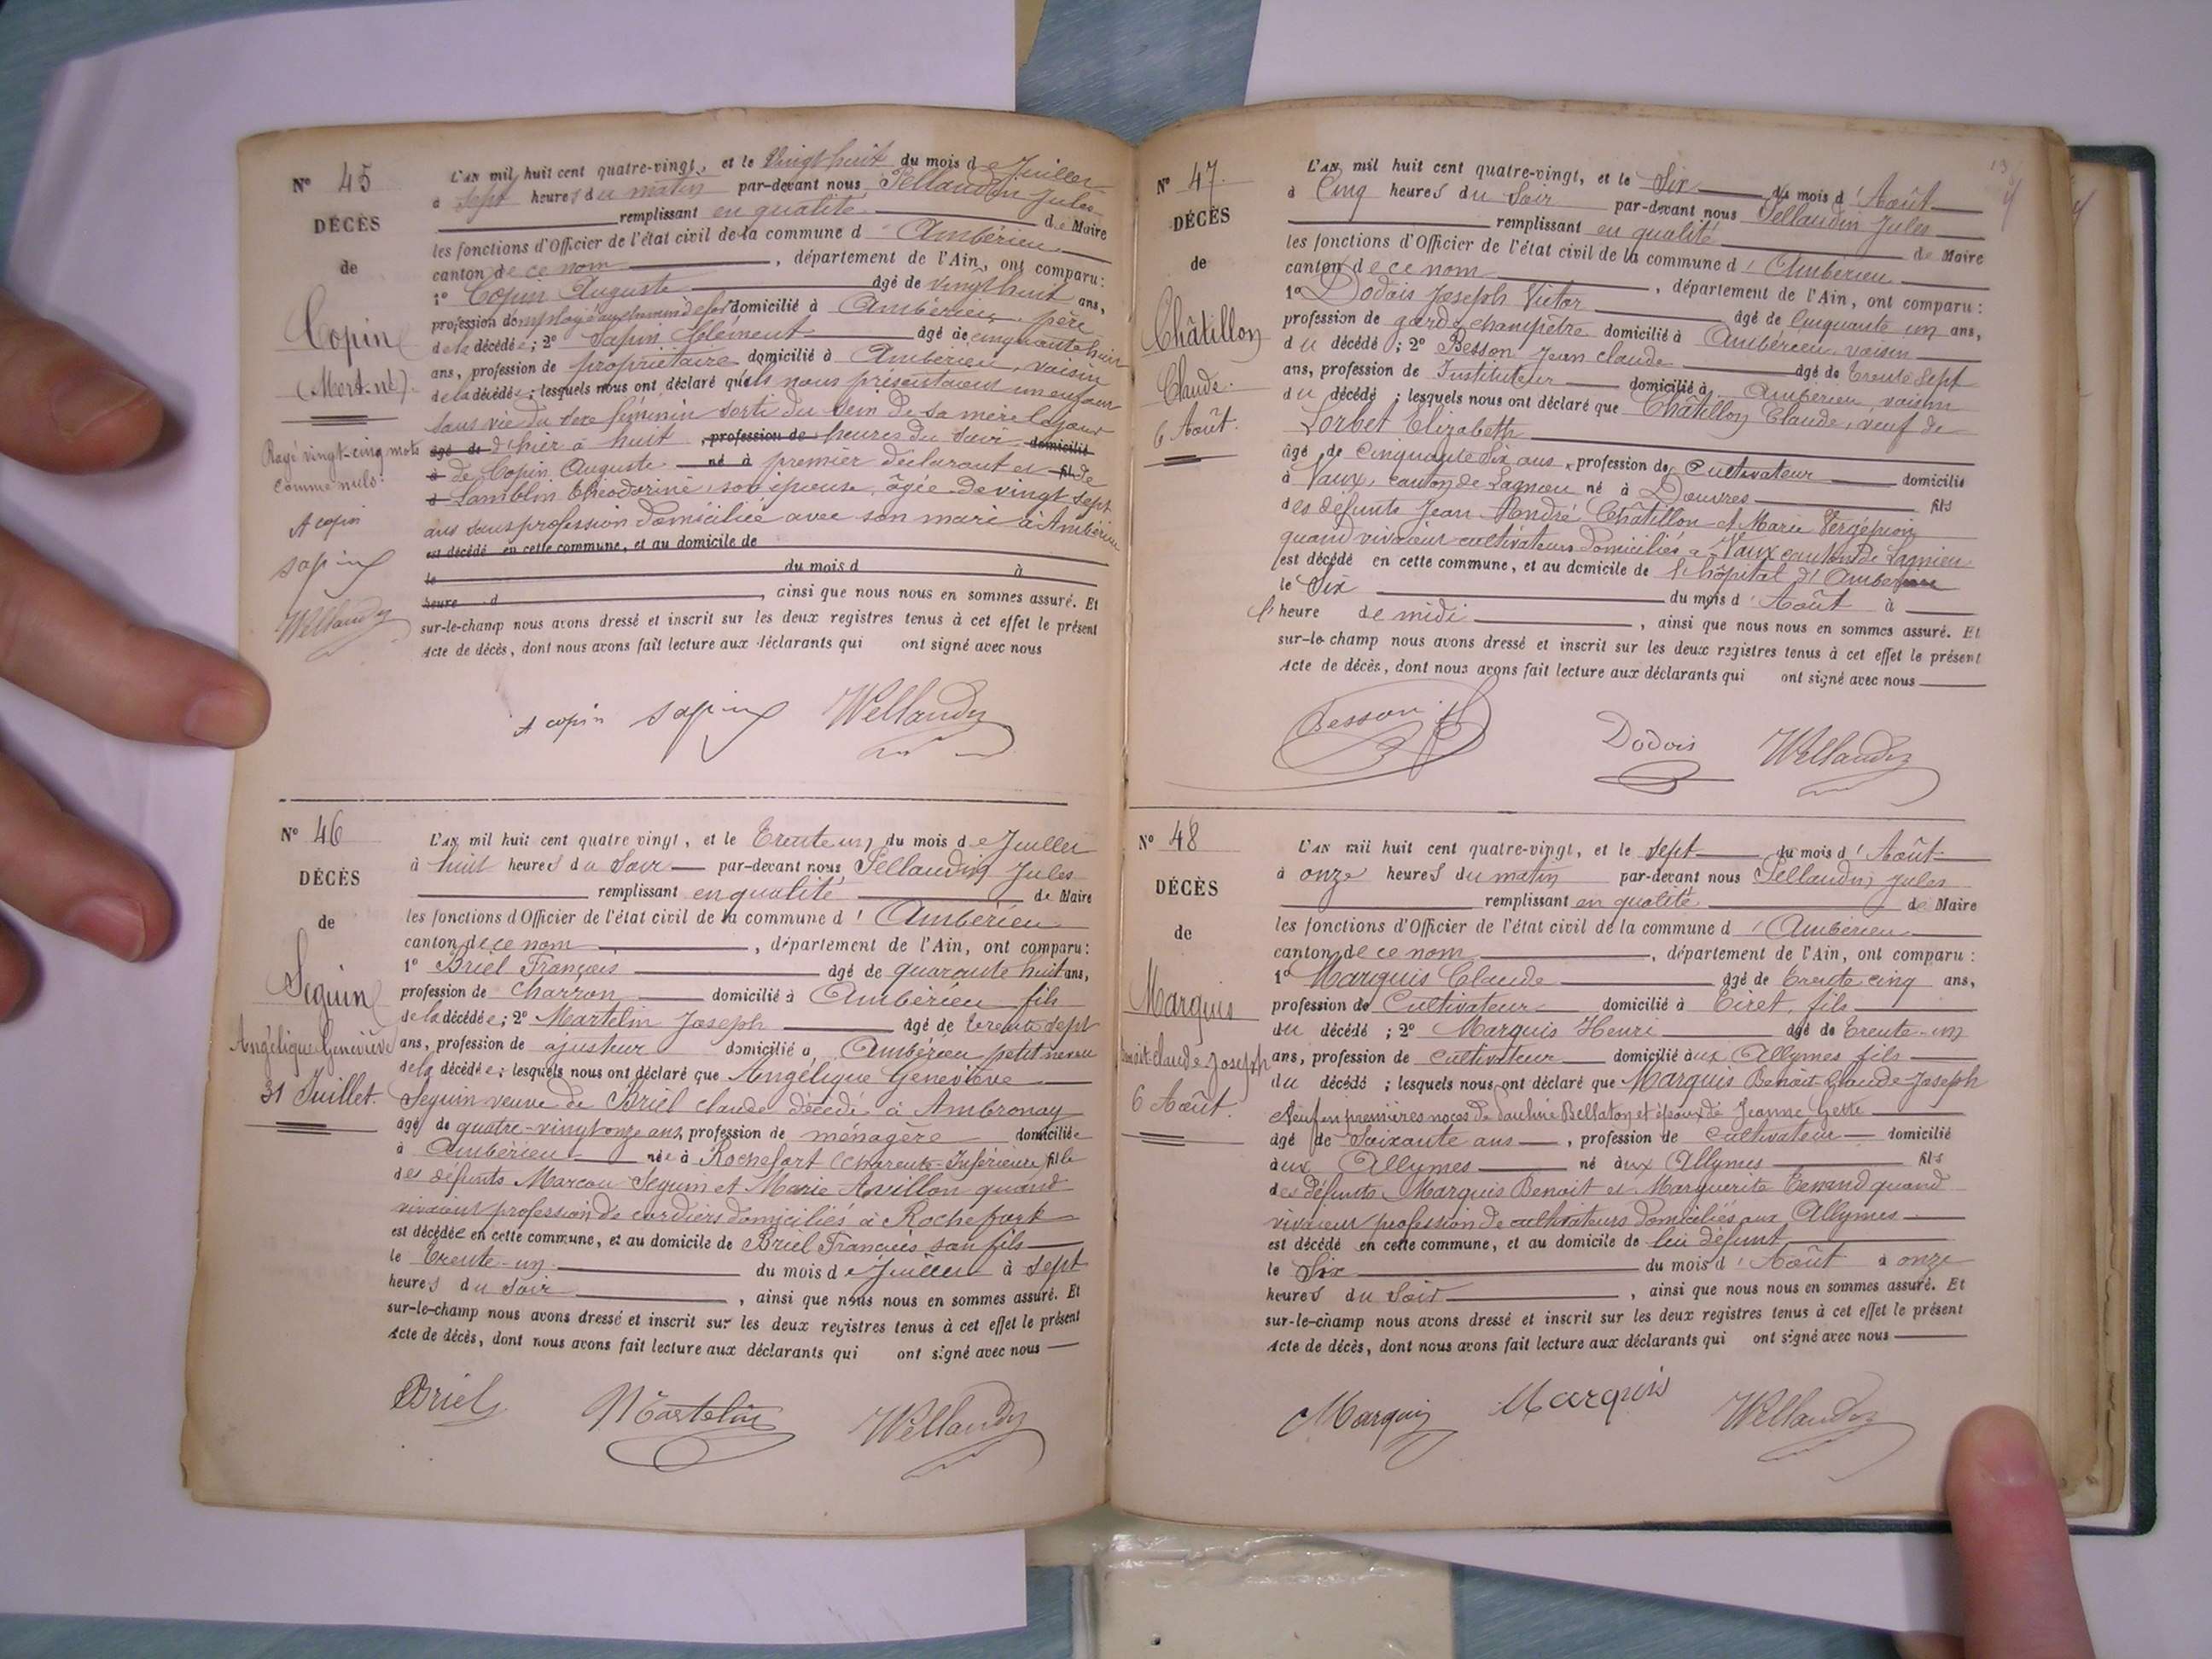 N° 45
DÉCÈS
de
Copin
(Mort-né)
Rayé vingt-cinq mots
comme nuls.
A copin
sapin
L'AN mil huit cent quatre-vingt, et le Vingt huit du mois de Juillet
à sept heures du matin par-devant nous Pellaudin Jules
remplissant en qualité de Maire
les fonctions d'Officier de l'état civil de la commune d'Ambérieu
canton de ce nom, département de l'Ain, ont comparu:
1° Copin Auguste âgé de vingt huit ans,
profession d'employé au chemin de fer domicilié à Ambérieu, père
de la décédée; 2° Sapin Clément âgé de cinquante huit
ans, profession de propriétaire domicilié à Ambérieu, voisin
de la décédée; lesquels nous ont déclaré qu'ils nous présentaient un enfant
sans vie du sexe féminin sorti du sein de sa mère le jour
âgé de d'hier à huit profession de heures du soir domicilié
à de Copin Auguste né à premier déclarant et fil de
d Lamblin Théodorine, son épouse, âgée de vingt sept
ans sans profession domiciliée avec son mari à Ambérieu
est décédé en cette commune, et au domicile de
le du mois d à
heure d, ainsi que nous nous en sommes assuré. Et
sur-le-champ nous avons dressé et inscrit sur les deux registres tenus à cet effet le présent
Acte de décès, dont nous avons fait lecture aux déclarants qui ont signé avec nous
A copin sapin
N° 46
DÉCÈS
de
Seguin
Angélique Geneviève
31 Juillet.
L'AN mil huit cent quatre vingt, et le Trente un du mois de Juillet
à huit heures du Soir par-devant nous Pellaudin Jules
remplissant en qualité de Maire
les fonctions d'Officier de l'état civil de la commune d'Ambérieu
canton de ce nom, département de l'Ain, ont comparu:
1° Briel François âgé de quarante huit ans,
profession de charron domicilié à Ambérieu fils
de la décédée; 2° Martelin Joseph âgé de trente sept
ans, profession de ajusteur domicilié à Ambérieu petit neveu
de la décédée; lesquels nous ont déclaré que Angélique Geneviève
Seguin veuve de Briel claude décédé à Ambronay
âgé de quatre-vingt onze ans, profession de ménagère domiciliée
à Ambérieu née à Rochefort (Charente-Inférieure) fille
des défunts Marcou Seguin et Marie Avillon quand
vivaient profession de cordiers domiciliés à Rochefort
est décédée en cette commune, et au domicile de Briel François son fils
le trente-un du mois de Juillet à sept
heures du soir, ainsi que nous nous en sommes assuré. Et
sur-le-champ nous avons dressé et inscrit sur les deux registres tenus à cet effet le présent
Acte de décès, dont nous avons fait lecture aux déclarants qui ont signé avec nous
Briel Martelin
13
N° 47.
DÉCÈS
de
Châtillon
Claude.
6 Août.
L'AN mil huit cent quatre-vingt, et le Six du mois d'Août
à Cinq heures du Soir par-devant nous Pellaudin Jules
remplissant en qualité de Maire
les fonctions d'Officier de l'état civil de la commune d'Ambérieu
canton de ce nom, département de l'Ain, ont comparu:
1° Dodois Joseph Victor âgé de cinquante un ans,
profession de garde champêtre domicilié à Ambérieu, voisin
du décédé; 2° Besson Jean Claude âgé de trente sept
ans, profession de Instituteur domicilié à Ambérieu voisin
du décédé; lesquels nous ont déclaré que Châtillon Claude, veuf de
Lorbet Elizabeth
âgé de cinquante six ans, profession de Cultivateur domicilié
à Vaux, canton de Lagnieu né à Douvres fils
des défunts Jean André Châtillon et Marie Vergépion
quand vivaient cultivateurs domiciliés à Vaux canton de Lagnieu
est décédé en cette commune, et au domicile de l'hôpital d'Ambérieu
le Six du mois d'Août à
l'heure de midi, ainsi que nous nous en sommes assuré. Et
sur-le-champ nous avons dressé et inscrit sur les deux registres tenus à cet effet le présent
Acte de décès, dont nous avons fait lecture aux déclarants qui ont signé avec nous
Besson Dodois
N° 48
DÉCÈS
de
Marquis
Benoit-Claude-Joseph
6 Août.
L'AN mil huit cent quatre-vingt, et le sept du mois d'Août
à onze heures du matin par-devant nous Pellaudin Jules
remplissant en qualité de Maire
les fonctions d'Officier de l'état civil de la commune d'Ambérieu
canton de ce nom, département de l'Ain, ont comparu:
1° Marquis Claude âgé de trente cinq ans,
profession de Cultivateur domicilié à Tiret, fils
du décédé; 2° Marquis Henri âgé de trente-un
ans, profession de cultivateur domicilié aux Allymes fils
du décédé; lesquels nous ont déclaré que Marquis Benoit-Claude-Joseph
Veuf en premières noces de Pauline Bellaton et époux de Jeanne Gette
âgé de Soixante ans, profession de cultivateur domicilié
aux Allymes né aux Allymes fils
des défunts Marquis Benoit et Marguerite quand
vivaient profession de cultivateurs domiciliés aux Allymes
est décédé en cette commune, et au domicile de lui défunt
le Six du mois d'Août à onze
heures du Soir, ainsi que nous nous en sommes assuré. Et
sur-le-champ nous avons dressé et inscrit sur les deux registres tenus à cet effet le présent
Acte de décès, dont nous avons fait lecture aux déclarants qui ont signé avec nous
Marquis Marquis